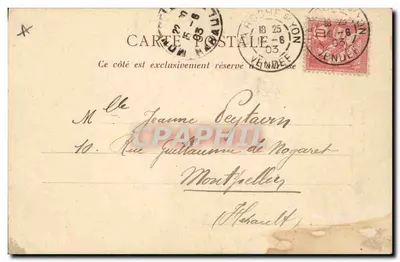 CARTE POSTALE
Ce côté est exclusivement réservé
ROCHE S YON
10 25
14 - 6
03
VENDÉE
Mlle Jeanne Peytavin
10. Rue Guillaume de Nogaret
Montpellier
(Hérault)
CPAPHIL